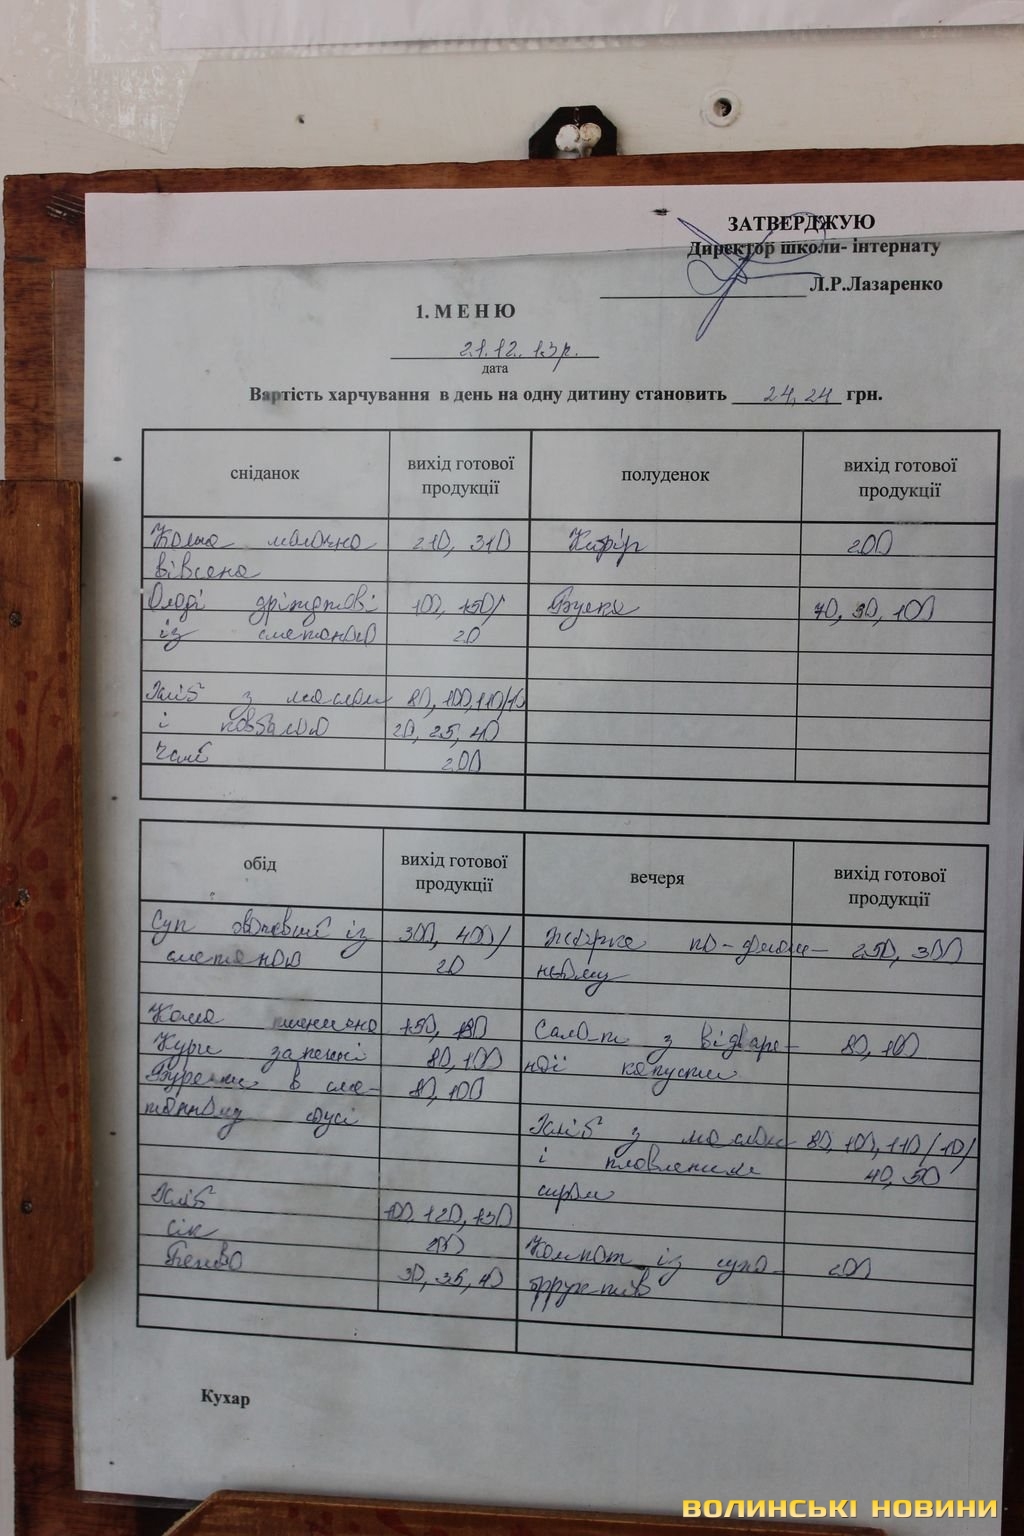 ЗАТВЕРДЖУЮ
Директор школи- інтернату
Л.Р.Лазаренко
1. М Е Н Ю
21.12. 13р.
дата
Вартість харчування в день на одну дитину становить 24,24 грн.
сніданок вихід готової продукції полуденок вихід готової продукції
Каша молочна 210, 310 Кефір 200
вівсяна
Оладі дріжджові 100, 150/ Булка 70, 90, 100
із сметаною 20
Хліб з маслом 80, 100, 110/10
і ковбасою 20, 25, 40
Чай 200
обід вихід готової продукції вечеря вихід готової продукції
Суп овочевий із 300, 400/ Жарке по-домаш- 250, 300
сметаною 20 ньому
Каша пшенична 150, 180 Салат з відваре- 80, 100
Кури запечені 80, 100 ної капусти
Буряки в сме- 80, 100
танному соусі Хліб з маслом 80, 100, 110/10/
і плавленим 40, 50
Хліб 100, 120, 150 сиром
сік 200 Компот із сухо- 200
Печиво 30, 35, 40 фруктів
Кухар
ВОЛИНСЬКІ НОВИНИ